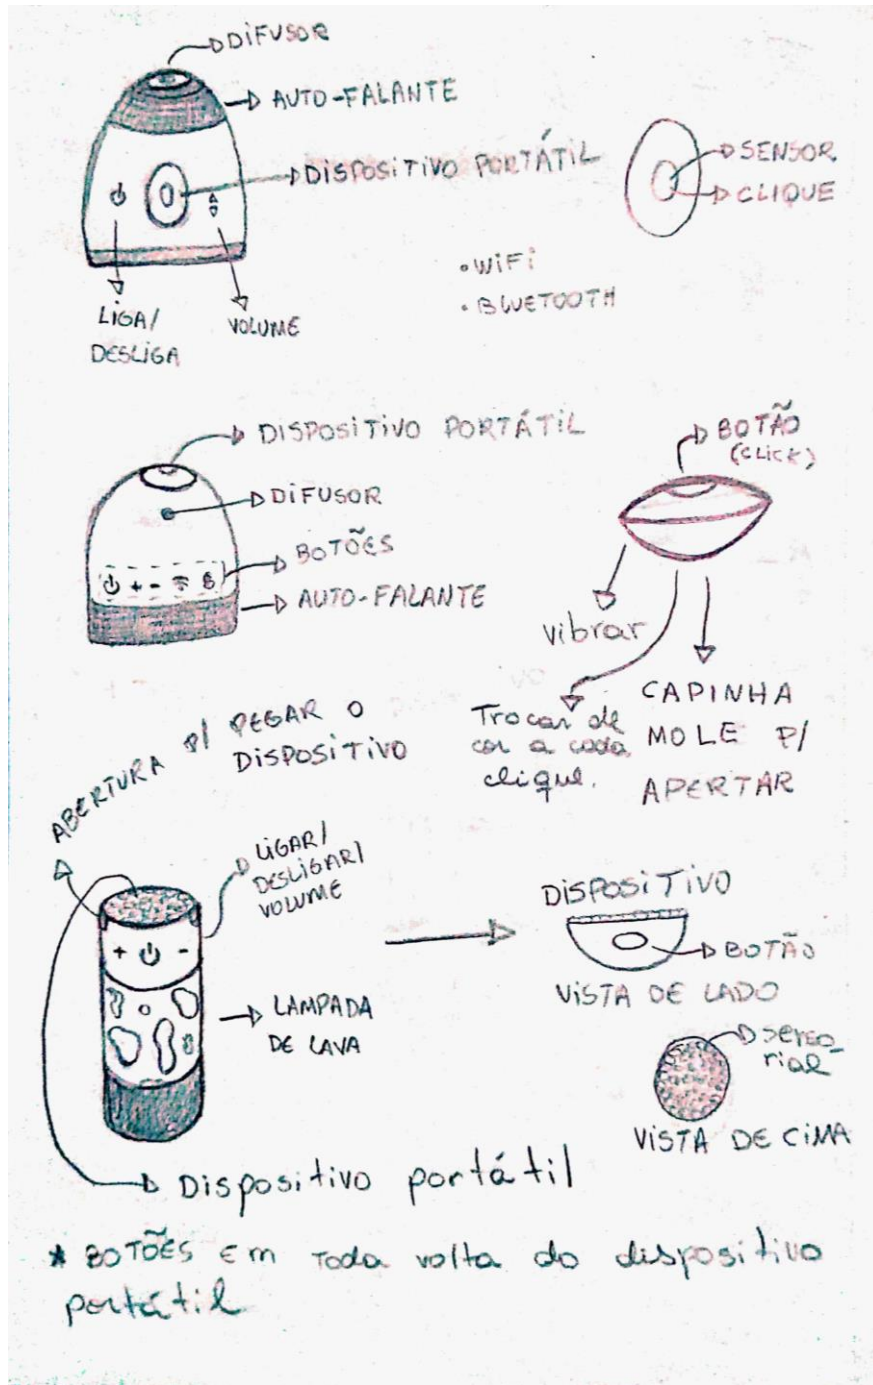 DIFUSOR
AUTO-FALANTE
DISPOSITIVO PORTÁTIL
SENSOR
CLIQUE
• WIFI
• BLUETOOTH
LIGA/
DESLIGA
VOLUME
DISPOSITIVO PORTÁTIL
DIFUSOR
BOTÕES
+ -
AUTO-FALANTE
BOTÃO
(CLICK)
Vibrar
Trocar de
cor a cada
clique.
CAPINHA
MOLE P/
APERTAR
ABERTURA P/ PEGAR O
DISPOSITIVO
LIGAR/
DESLIGAR/
VOLUME
+ -
LAMPADA
DE LAVA
DISPOSITIVO
BOTÃO
VISTA DE LADO
senso-
rial
VISTA DE CIMA
Dispositivo portátil
* BOTÕES Em Toda volta do dispositivo
portátil